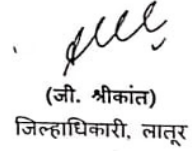 (जी. श्रीकांत)
जिल्हाधिकारी, लातूर